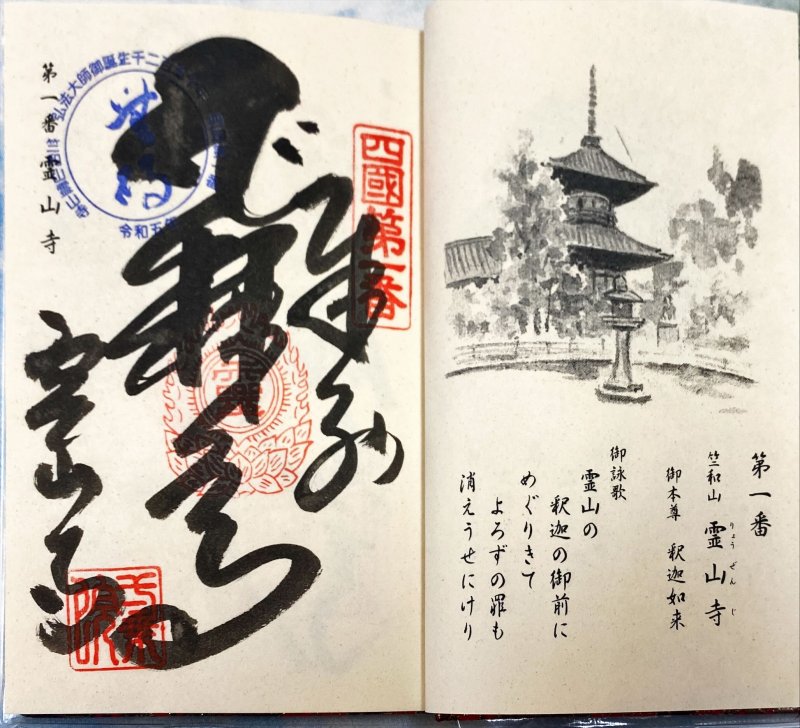 第一番
竺和山 霊山寺
りょうぜんじ
御本尊 釈迦如来
御詠歌
霊山の
釈迦の御前に
めぐりきて
よろずの罪も
消えうせにけり
四國第一番
奉納
釈迦如来
霊山寺
第一番 霊山寺
弘法大師御誕生千二百五十年
令和五年